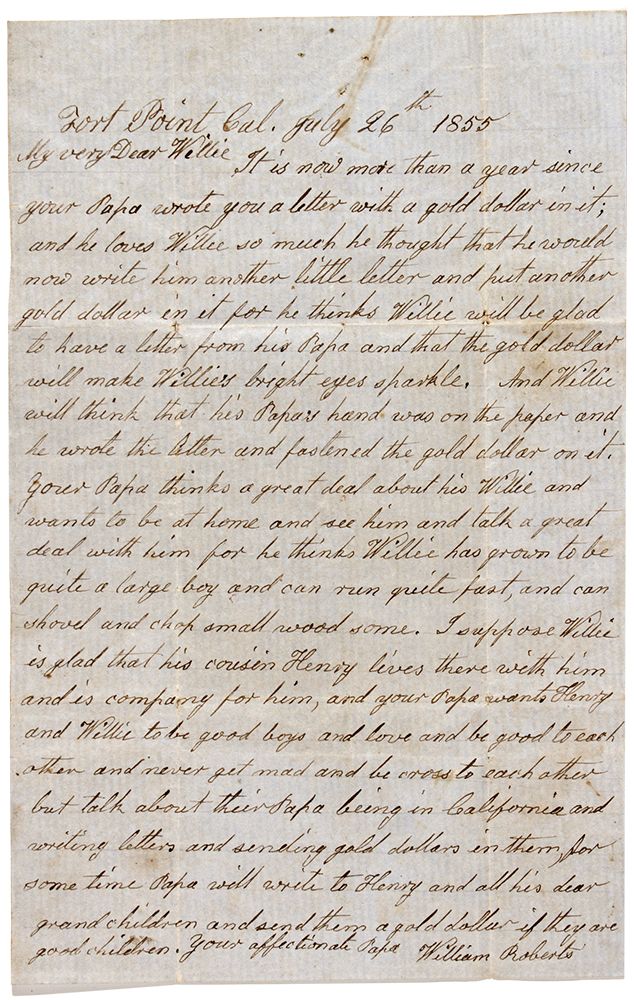 Fort Point Cal. July 26th 1855
My very Dear Willie It is now more than a year since
your Papa wrote you a letter with a gold dollar in it;
and he loves Willie so much he thought that he would
now write him another little letter and put another
gold dollar in it for he thinks Willie will be glad
to have a letter from his Papa and that the gold dollar
will make Willie's bright eyes sparkle. And Willie
will think that his Papa's hand was on the paper and
he wrote the letter and fastened the gold dollar on it.
Your Papa thinks a great deal about his Willie and
wants to be at home and see him and talk a great
deal with him for he thinks Willie has grown to be
quite a large boy and can run quite fast, and can
shovel and chop small wood some. I suppose Willie
is glad that his cousin Henry lives there with him
and is company for him, and your Papa wants Henry
and Willie to be good boys and love and be good to each
other and never get mad and be cross to each other
but talk about their Papa being in California and
writing letters and sending gold dollars in them, for
some time Papa will write to Henry and all his dear
grand children and send them a gold dollar if they are
good children. Your affectionate Papa William Roberts